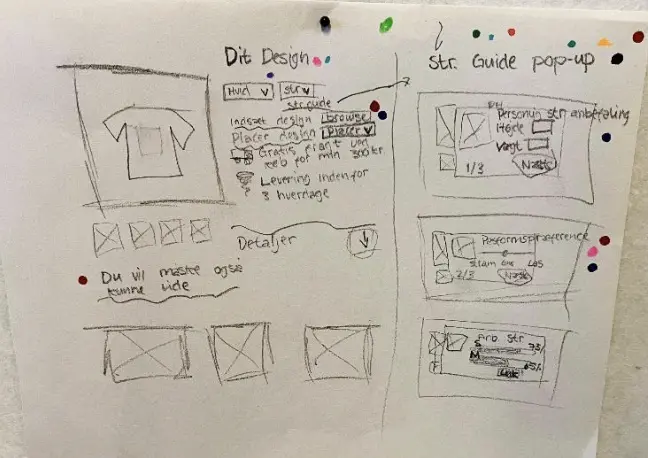 Dit Design
Hvid str
str.guide
Indsæt design browse
Placer design Placer
Gratis fragt ved
køb for min 300 kr.
Levering indenfor
3 hverdage
Detaljer
Du vil måske også
kunne lide
str. Guide pop-up
Personlig str anbefaling
Højde
Vægt
1/3 Næste
Pasformspræference
2/3 Næste
str
S
M
65%